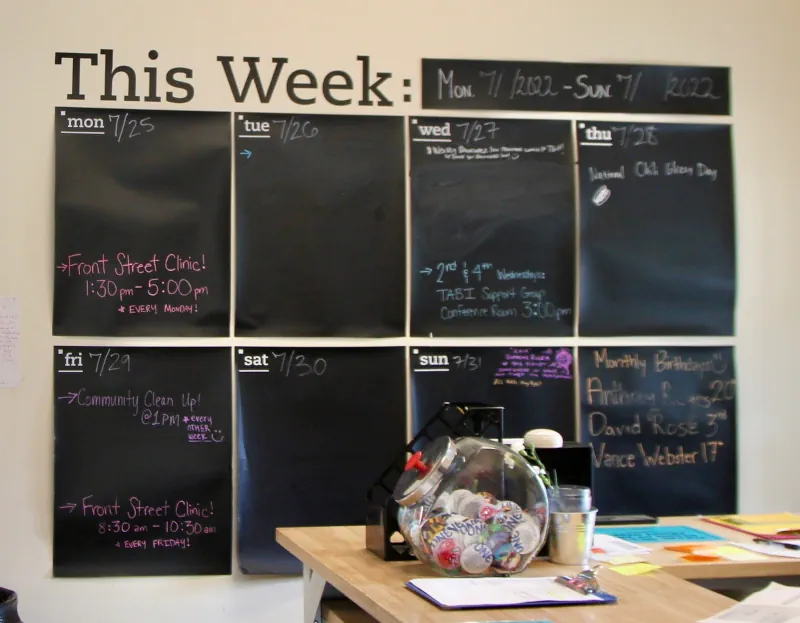 This Week:
Mon. 7/ /2022 - Sun. 7/ /2022
mon 7/25
Front Street Clinic!
1:30pm - 5:00pm
* EVERY MONDAY!
tue 7/26
wed 7/27
→ 2nd & 4th Wednesdays:
TABI Support Group
Conference Room 3:00pm
thu 7/28
National Chili Day
fri 7/29
→Community Clean Up!
@1PM *every
OTHER
WEEK
→Front Street Clinic!
8:30am - 10:30am
* EVERY FRIDAY!
sat 7/30
sun 7/31
Monthly Birthdays!
Anthony
David Rose 3rd
Vance Webster 17